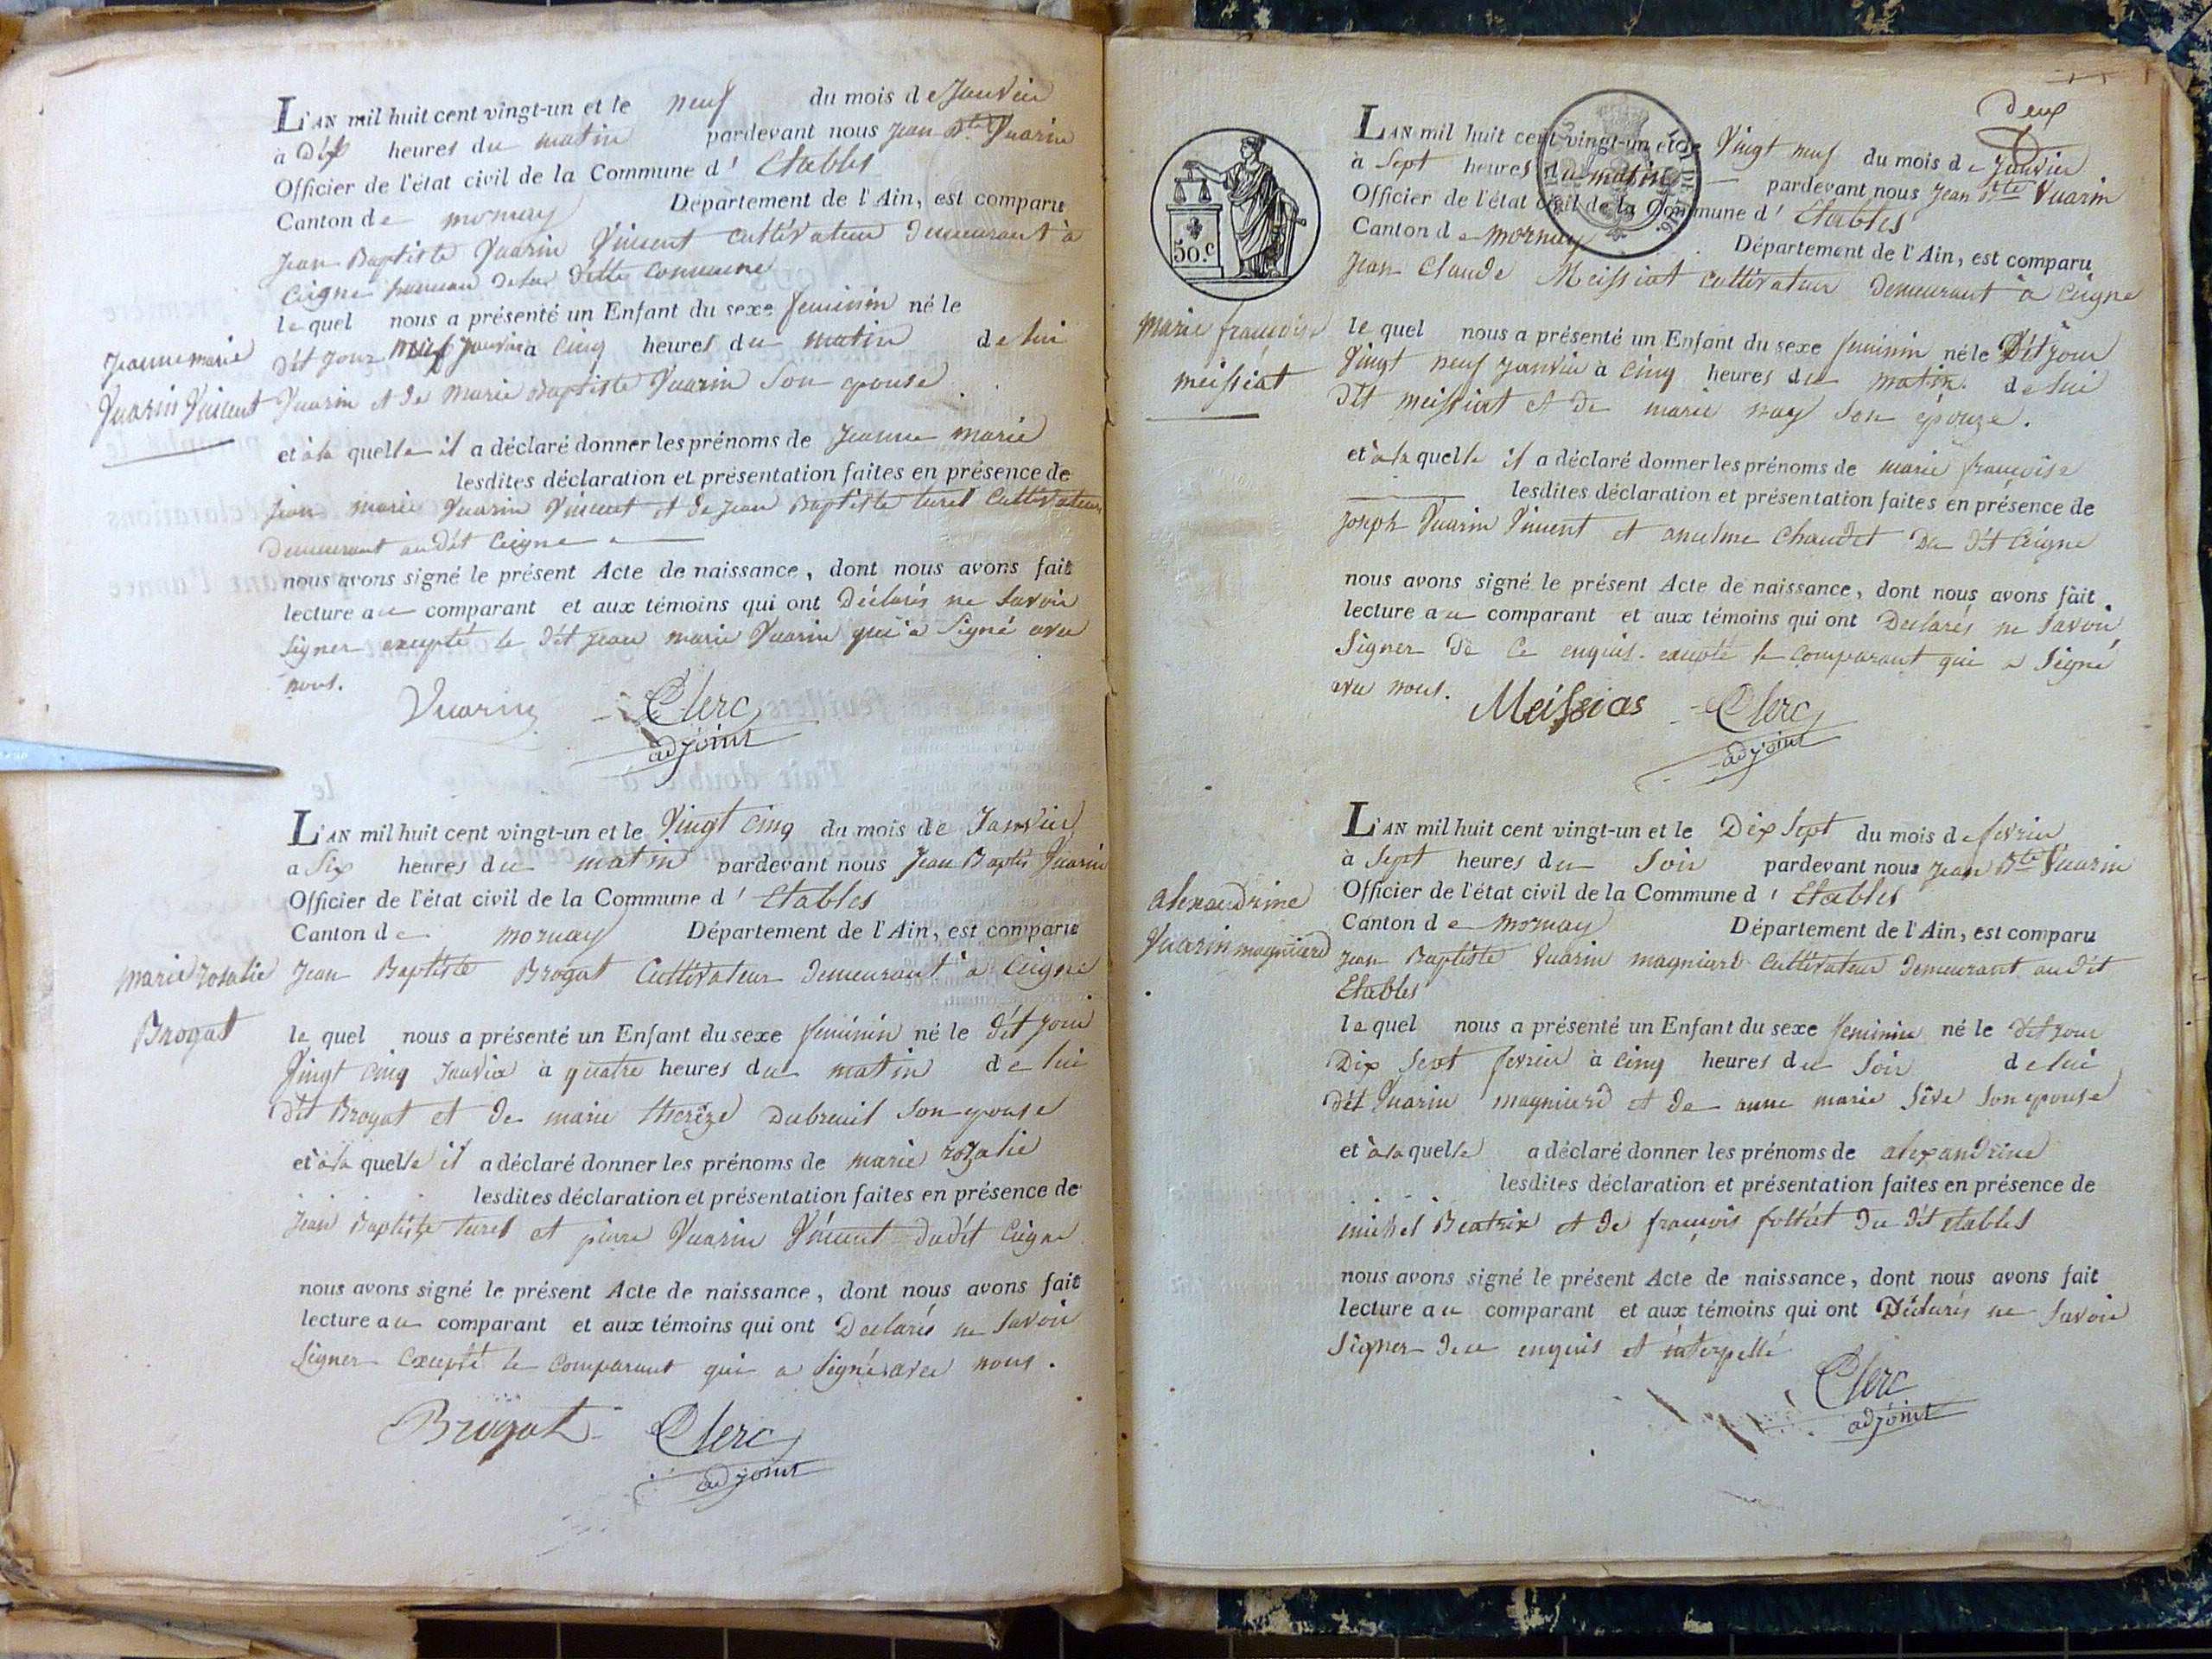 L'AN mil huit cent vingt-un et le neuf du mois de Janvier
à Dix heures du matin pardevant nous Jean Bte Vuarin
Officier de l'état civil de la Commune d' Etables
Canton de mornay Département de l'Ain, est comparu
Jean Baptiste Vuarin Vincent cultivateur demeurant à
Ceigne hameau de la ditte Commune
le quel nous a présenté un Enfant du sexe feminin né le
dit jour neuf janvier à cinq heures du matin de lui
Jeanne marie
Vuarin Vincent
Vuarin et de Marie Baptiste Vuarin Son epouse
et à la quelle il a déclaré donner les prénoms de Jeanne marie
lesdites déclaration et présentation faites en présence de
jean marie Vuarin Vincent et de Jean Baptiste turel Cultivateurs
Demeurant audit Ceigne
nous avons signé le présent Acte de naissance, dont nous avons fait
lecture au comparant et aux témoins qui ont Déclarés ne Savoir
Signer excepté le dit jean marie Vuarin qui a Signé avec
nous.
Vuarin Clerc
adjoint
L'AN mil huit cent vingt-un et le Vingt cinq du mois de Janvier
à Six heures du matin pardevant nous Jean Baptis Vuarin
Officier de l'état civil de la Commune d' Etables
Canton de mornay Département de l'Ain, est comparu
marie rosalie
Brogat
Jean Baptiste Brogat Cultivateur demeurant à Ceigne
le quel nous a présenté un Enfant du sexe feminin né le dit jour
Vingt cinq Janvier à quatre heures du matin de lui
dit Brogat et de marie thereze Dubreuil Son epouse
et à la quelle il a déclaré donner les prénoms de marie rozalie
lesdites déclaration et présentation faites en présence de
Jean Baptiste turel et pierre Vuarin Vincent dudit Ceigne
nous avons signé le présent Acte de naissance, dont nous avons fait
lecture au comparant et aux témoins qui ont Declarés ne Savoir
Signer Excepté le Comparant qui a Signé avec nous.
Brogat Clerc
adjoint
deux
50.c
L'AN mil huit cent vingt-un et le Vingt neuf du mois de Janvier
à Sept heures du matin pardevant nous Jean Bte Vuarin
Officier de l'état civil de la Commune d' Etables
Canton de mornay Département de l'Ain, est comparu
Jean Claude Meissiat cultivateur demeurant à Ceigne
marie françoise
meissiat
le quel nous a présenté un Enfant du sexe feminin né le Dit jour
Vingt neuf janvier à Cinq heures du matin de lui
Dit meissiat et de marie nay Son épouze.
et à la quelle il a déclaré donner les prénoms de marie françoise
lesdites déclaration et présentation faites en présence de
joseph Vuarin Vincent et anselme Chaudet du dit Ceigne
nous avons signé le présent Acte de naissance, dont nous avons fait
lecture au comparant et aux témoins qui ont Declarés ne Savoir
Signer de Ce enquis. excepté le comparant qui a Signé
avec nous. Meissias Clerc
adjoint
L'AN mil huit cent vingt-un et le Dix Sept du mois de fevrier
à Sept heures du Soir pardevant nous Jean Bte Vuarin
Officier de l'état civil de la Commune d' Etables
alexandrine
Vuarin magniard
Canton de mornay Département de l'Ain, est comparu
Jean Baptiste Vuarin magniard Cultivateur demeurant audit
Etables
le quel nous a présenté un Enfant du sexe feminin né le dit jour
Dix Sept fevrier à cinq heures du Soir de lui
dit Vuarin magniard et de anne marie Séve Son epouse
et à la quelle a déclaré donner les prénoms de alexandrine
lesdites déclaration et présentation faites en présence de
michel Beatrix et de françois du dit etables
nous avons signé le présent Acte de naissance, dont nous avons fait
lecture au comparant et aux témoins qui ont Déclarés ne Savoir
Signer de ce enquis et interpellé
Clerc
adjoint